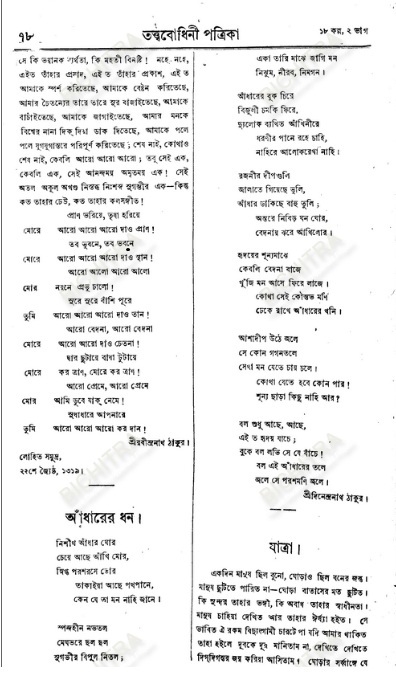 ৭৮
তত্ত্ববোধিনী পত্রিকা
১৮ কল্প, ২ ভাগ
সে কি ভয়ানক ব্যর্থতা, কি মহতী বিনষ্টি! নহে, নহে,
এইত তাঁহার প্রসাদ, এই ত তাঁহার প্রকাশ, এই ত
আমাকে স্পর্শ করিতেছে, আমাকে বেষ্টন করিতেছে,
আমার চৈতন্যের তারে তারে সুর বাজাইতেছে, আমাকে
বাঁচাইতেছে, আমাকে জাগাইতেছে, আমার মনকে
বিশ্বের নানা দিক্ দিয়া ডাক দিতেছে, আমাকে পলে
পলে যুগযুগান্তরে পরিপূর্ণ করিতেছে; শেষ নাই, কোথাও
শেষ নাই, কেবলি আরো আরো আরো; তবু সেই এক,
কেবলি এক, সেই আনন্দময় অমৃতময় এক! সেই
অতল অকূল অখণ্ড নিস্তব্ধ নিঃশব্দ সুগম্ভীর এক—কিন্তু
কত তাহার ঢেউ, কত তাহার কলসঙ্গীত!
প্রাণ ভরিয়ে, তৃষা হরিয়ে
মোরে আরো আরো আরো দাও প্রাণ!
তব ভুবনে, তব ভবনে
মোরে আরো আরো আরো দাও স্থান!
আরো আলো আরো আলো
মোর নয়নে প্রভু ঢালো!
সুরে সুরে বাঁশি পূরে
তুমি আরো আরো আরো দাও তান!
আরো বেদনা, আরো বেদনা
মোরে আরো আরো আরো দাও চেতনা!
দ্বার ছুটায়ে বাধা টুটায়ে
মোরে কর ত্রাণ, মোরে কর ত্রাণ!
আরো প্রেমে, আরো প্রেমে
মোর আমি ডুবে যাক্ নেমে!
সুধাধারে আপনারে
তুমি আরো আরো আরো কর দান!
শ্রীরবীন্দ্রনাথ ঠাকুর।
লোহিত সমুদ্র,
২২শে জ্যৈষ্ঠ, ১৩১৯।
আঁধারের ধন।
নিশীথ আঁধার ঘোর
চেয়ে আছে আঁখি মোর,
স্নিগ্ধ পরশরসে ভোর
তাকাইয়া আছে পথপানে,
কেন যে তা মন নাহি জানে।
স্পন্দহীন নভতল
মেঘভরে ছল ছল
সুগভীর বিপুল নিতল;
একা তারি মাঝে জাগি মন
নিঝুম, নীরব, নিমগন।
আঁধারের বুক চিরে
বিজুলী চমকি ফিরে,
দ্যুলোক ব্যথিত আঁখিনীরে
ধরণীর পানে রহে চাহি,
নাহিরে আলোকরেখা নাহি।
রজনীর দীপগুলি
জ্বালাতে গিয়েছে ভুলি,
আঁধার ডাকিছে বাহু তুলি;
অন্তরে নিবিড় ঘন ঘোর,
বেদনায় ঝরে আঁখিলোর।
হৃদয়ের শূন্যমাঝে
কেবলি বেদনা বাজে
খুঁজি মন আসে ফিরে লাজে।
কোথা সেই কৌস্তভ মণি
ঢেকে রাখে আঁধারের খনি।
আশাদীপ উঠে জ্বলে
সে কোন গগনতলে
সেথা মন যেতে চায় চলে।
কোথা যেতে হবে কোন পার!
শূন্য ছাড়া কিছু নাহি আর?
বল শুধু আছে, আছে,
এই ত হৃদয় যাচে;
বুকে বল লভি সে যে বাঁচে!
বল এই আঁধারের তলে
জ্বলে সে পরশমণি জ্বলে।
শ্রীদিনেন্দ্রনাথ ঠাকুর।
যাত্রা।
একদিন মানুষ ছিল বুনো, ঘোড়াও ছিল বনের জন্তু।
মানুষ ছুটিতে পারিত না—ঘোড়া বাতাসের মত ছুটিত।
কি সুন্দর তাহার ভঙ্গী, কি অবাধ তাহার স্বাধীনতা।
মানুষ চাহিয়া দেখিত আর তাহার ঈর্ষ্যা হইত। সে
ভাবিত ঐ রকম বিদ্যুৎগামী চারটে পা যদি আমার থাকিত
তাহা হইলে দূরকে দূর মানিতাম না, দেখিতে দেখিতে
দিগ্‌দিগন্তর জয় করিয়া আসিতাম। ঘোড়ার সর্ব্বাঙ্গে যে
BICHITRA